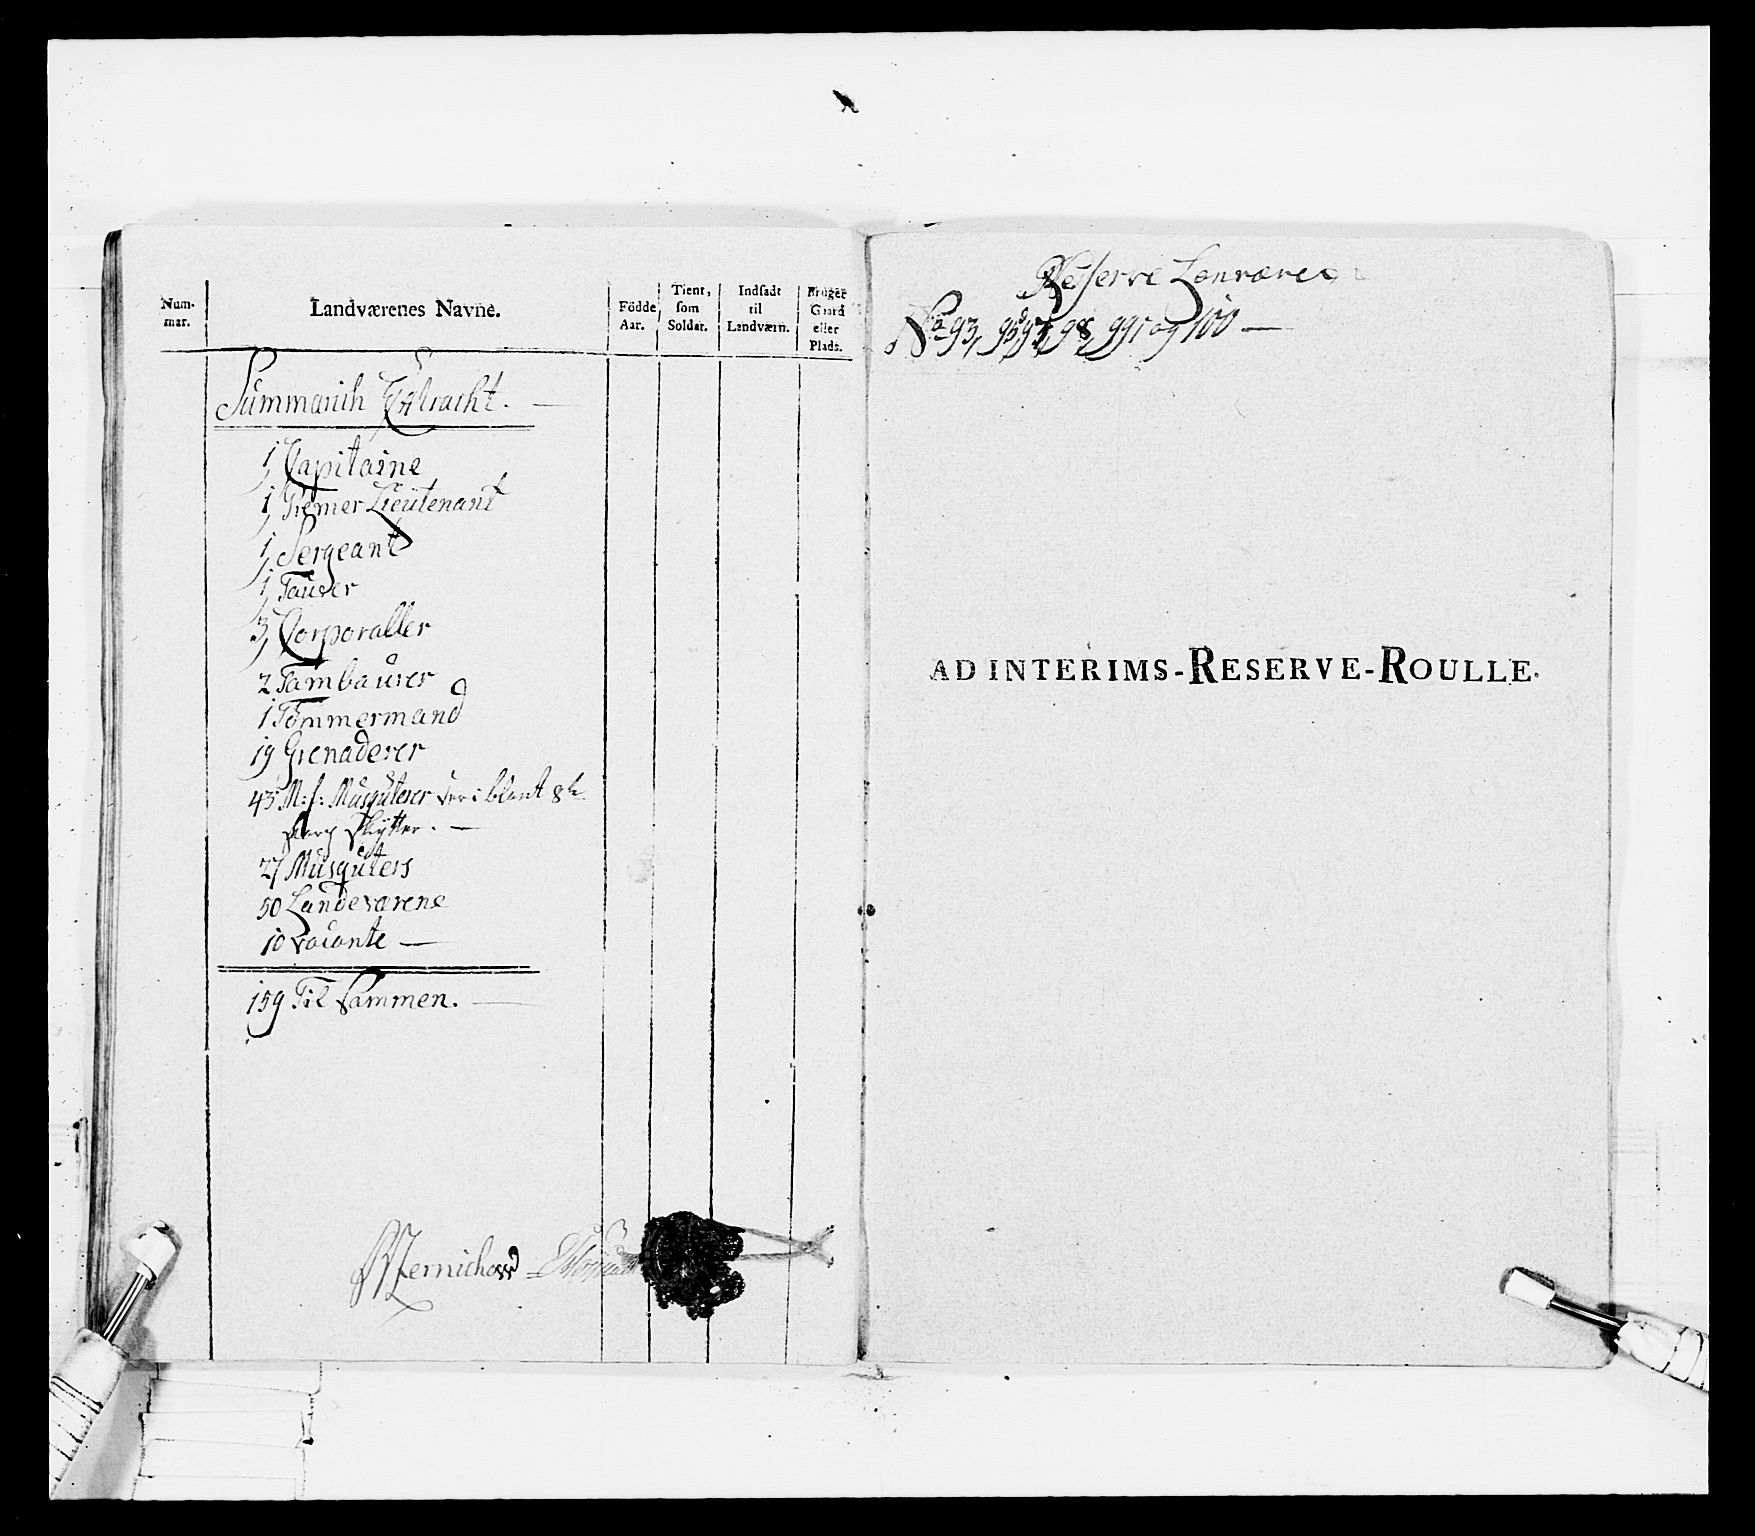 Num-
mar.
Landværenes Navne.
Födde
Aar.
Tient,
som
Soldat.
Indsadt
til
Landværn.
Bruger
Gaard
eller
Plads.
Summarish Extracht. —
1, Capitaine
1, Premer Lieutenant
1, Sergeant
1, Fourer
3, Corporaller
2 Tambaurer
1 Tömmermand
19 Grenaderer
43 M:f: Musquterer der i blant 8te
skarp skytter. —
27 Musquters
50 Landeværene
10 vacante —
159 Til sammen. —
Reserve Lanværer
No 93, 95, 97, 98, 99, og 100 —
AD INTERIMS-RESERVE-ROULLE.